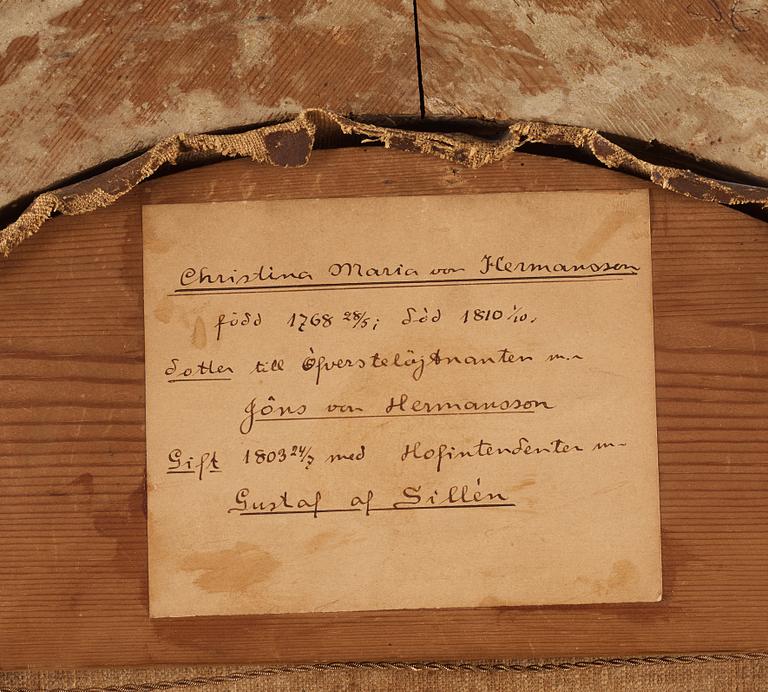 Christina Maria von Hermansson
född 1768 28/5; död 1810 1/10.
dotter till Öfverstelöjtnanten m.
Jöns von Hermansson
Gift 1803 24/3 med Hofintendenten m
Gustaf af Sillén